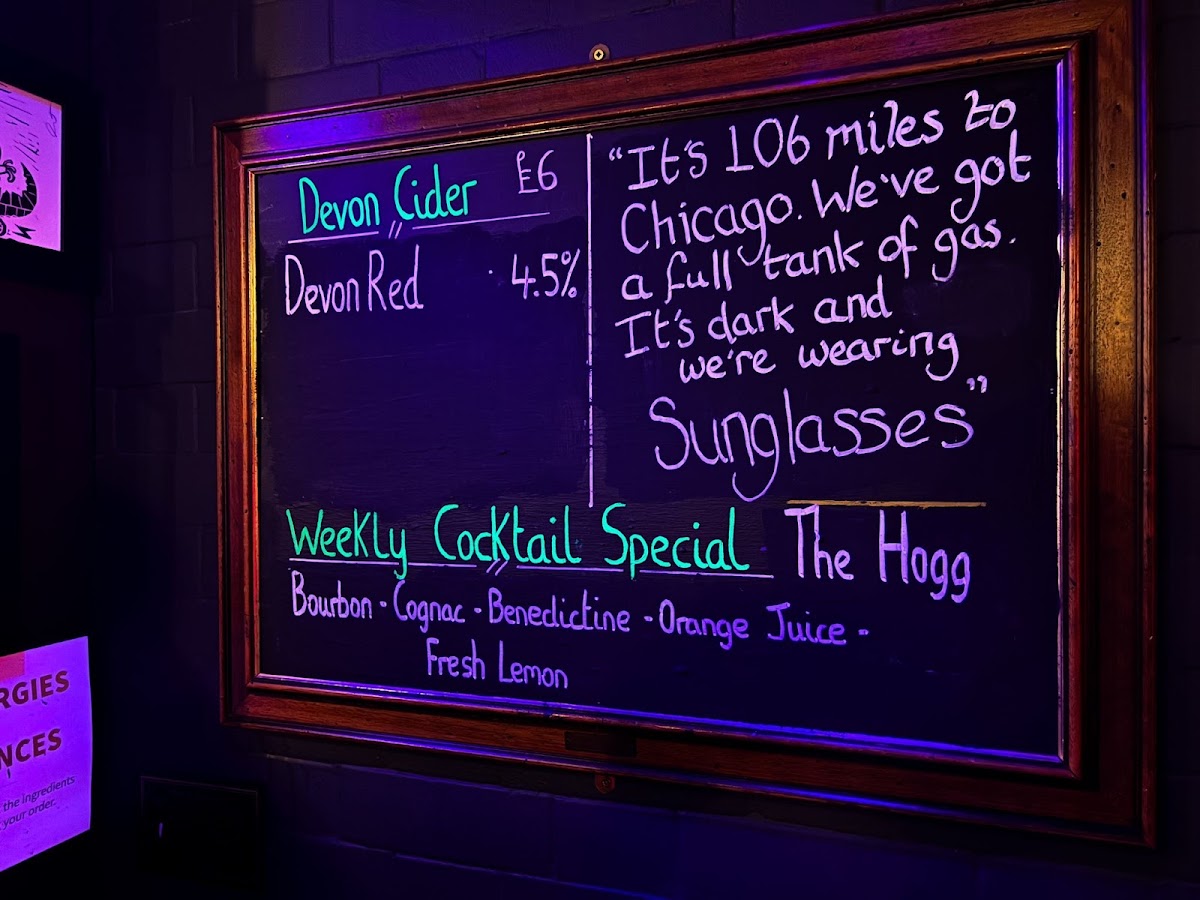 Devon Cider £6
Devon Red 4.5%
"It's 106 miles to
Chicago. We've got
a full tank of gas.
It's dark and
we're wearing
Sunglasses"
Weekly Cocktail Special The Hogg
Bourbon - Cognac - Benedictine - Orange Juice -
Fresh Lemon
RGIES
NCES
the ingredients
your order.